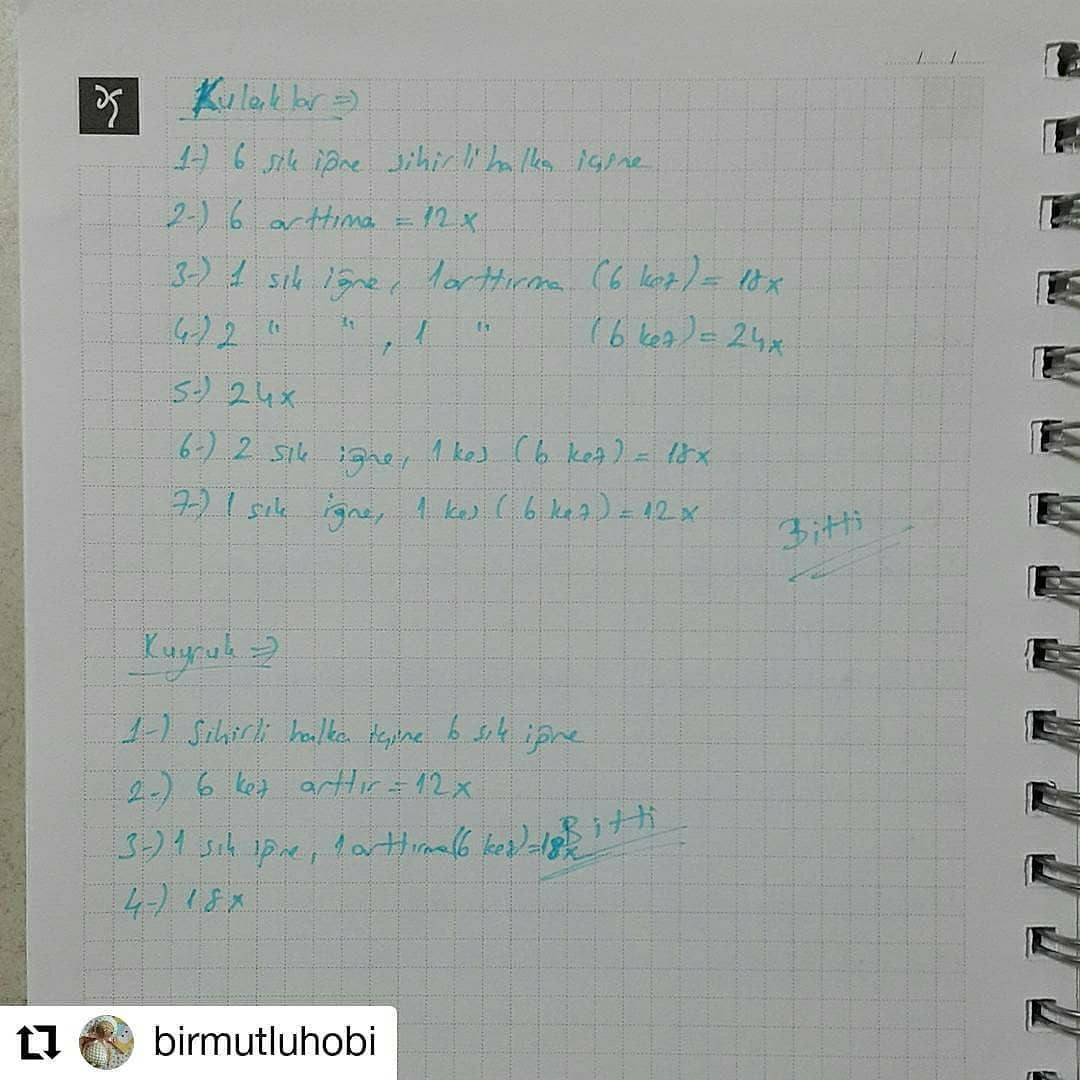 / /
Kulaklar =>
1-) 6 sık iğne sihirli halka içine
2-) 6 arttıma = 12x
3-) 1 sık iğne, 1 arttırma (6 kez) = 18x
4-) 2 " " , 1 " (6 kez) = 24x
5-) 24x
6-) 2 sık iğne, 1 kes (6 kez) = 18x
7-) 1 sık iğne, 1 kes (6 kez) = 12x
Bitti
Kuyruk =>
1-) Sihirli halka içine 6 sık iğne
2-) 6 kez arttır = 12x
3-) 1 sık iğne, 1 arttırma (6 kez) = 18x
Bitti
4-) 18x
birmutluhobi